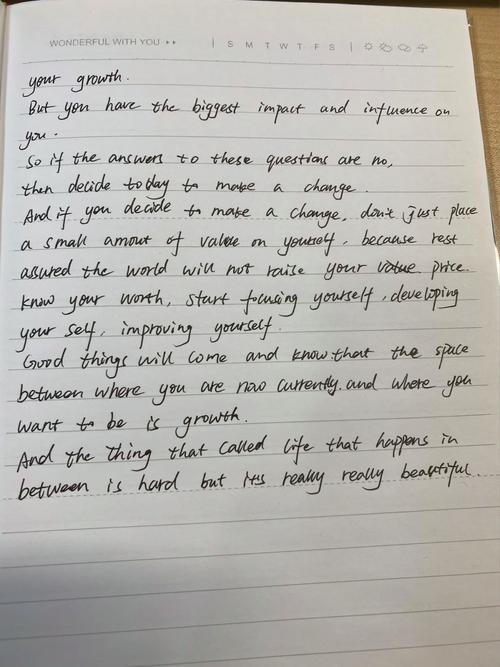 WONDERFUL WITH YOU | S M T W T F S |
your growth.
But you have the biggest impact and influence on
you.
So if the answers to these questions are no,
then decide today to make a change.
And if you decide to make a change, don't just place
a small amout of value on yourself, because rest
assured the world will not raise your value price.
know your worth, start focusing yourself, developing
your self, improving yourself.
Good things will come and know that the space
between where you are now currently. and where you
want to be is growth.
And the thing that called life that happens in
between is hard but its really really beautiful.